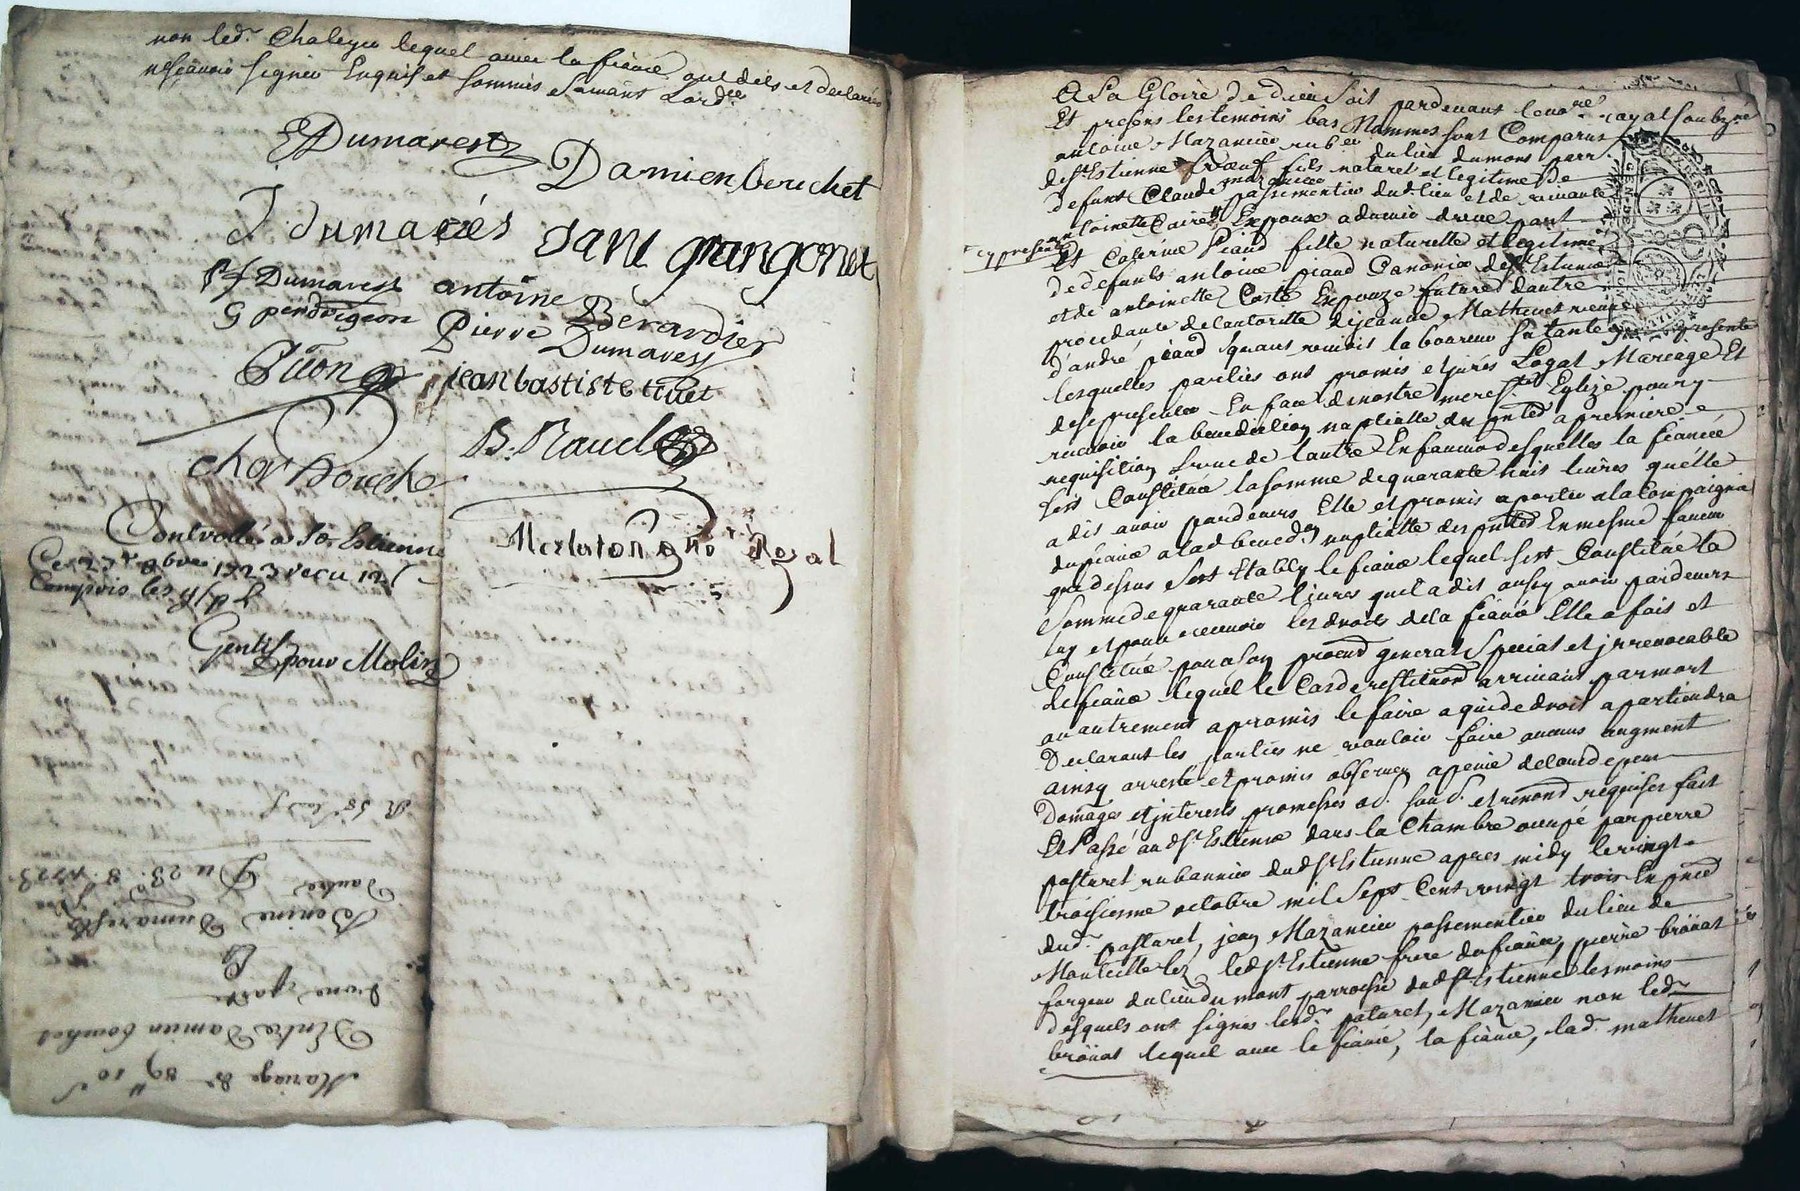 non led.t Chaleyer lequel avec la fiancé ont dits et déclarés
ne sçavoir signer Enquis et sommés suivans Lord.ce
EDumarest
Damien beuchet
J dumarés
Jane grangonet
Dumarest
antoine Berardier
G perdrigeon
Pierre Dumarest
jean bastiste
B. Rauel
Controllé a St. Estienne
Ce 27e 8bre 1723 recu 12
Compris les
Gentil pour Molin
Merlaton no.re Royal
Du 23e 8bre 1723
d'autre
Dumarest
Et
d'une part
Entre Damien bouchet
Mariage
A La Gloire de dieu Soit pardevant le no.re royal soubz.né
Et presens les temoins bas Nommes sont Comparus
antoine Mazancieu ruber du lieu du mont parr.
de St Estienne fils naturel et legitime de
defunt Claude mazancieu passementier dud. lieu et de vivante
antoinette Epoux advenir d'une part
cy presente
Et Caterine Piaud fille naturelle et legitime
de defunts antoine piaud de St Estienne
et de antoinette Coste Expouze future d'autre
procedante de l'autorité de jeanne Mathevet veuve
d'andré piaud quand vivoit laboureur sa tante presente
lesquelles parties ont promis et jurés Loyal Mariage Et
de se presenter En face de nostre mere S.te Eglize pour y
recevoir la benediction nuptialle du a premiere
requisition l'une de l'autre En faveur desquelles la fiancée
sest Constituée la somme de quarante huit livres quelle
a dit avoir pardevers Elle et promis aporter a la Compaignie
du fiancé a lad. bened.on nuptialle Enmesme faveur
que dessus sest Etably le fiancé lequel sest Constitué la
Somme de quarante livres quil a dit aussy avoir pardevers
luy et pour recevoir les droits de la fiancé Elle a fait et
Constitué pour son procur. general Special et jrrevocable
le fiancé lequel le Cas de restitution arrivant par mort
ou autrement a promis le faire a qui de droit apartiendra
Declarant les parties ne vouloir faire aucuns augment
ainsy arresté et promis observer apeine de tous depens
Domages et jnterests promesses ob. soub. et renond requises fait
Et Passé aud St Estienne dans la Chambre occupé par pierre
pasturel rubannier dud St Estienne apres midy le vingt
troisiesme octobre mil Sept Cent vingt trois En presce
dud. pasturel, jean Mazancieu passementier du lieu de
Monteille led St Estienne frere du fiancé, pierre broüat
forgeur du lieu du mont parroisse dud St Estienne temoins
desquels ont signes lesd. pasturel, Mazancieu non led.
broüat lequel avec le fiancé, la fiancé, lad. mathevet